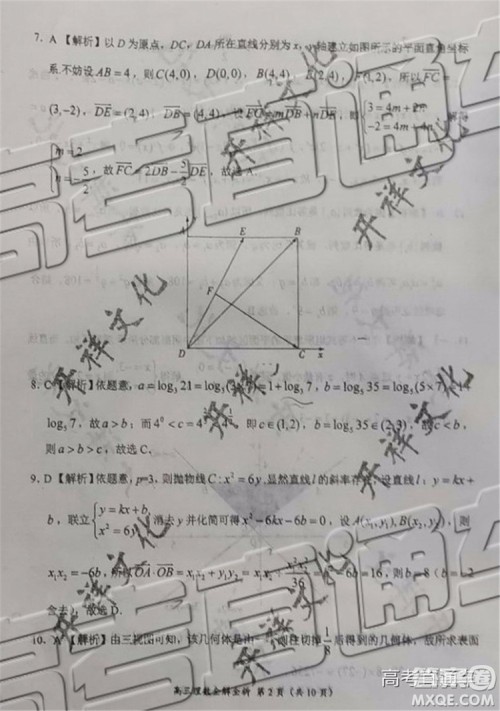 7. A 【解析】以 D 为原点，DC，DA 所在直线分别为 x，y 轴建立如图所示的平面直角坐标
系.不妨设 AB=4，则 C(4,0)，D(0,0)，B(4,4)，E(2,4)，F(1,2)，所以 FC=
(3,-2)，DE=(2,4)，DB=(4,4)，设 FC=mDB+nDE，则 {3=4m+2n, -2=4m+4n
{m=2, n=-5/2，故 FC=2DB-5/2DE，故选 A.
E
B
F
D
C
x
8. C 【解析】依题意，a=log₃21=log₃(3×7)=1+log₃7，b=log₅35=log₅(5×7)=1+
log₅7，故 a>b；而 4⁰<c=4，即 c∈(1,2)，
则 a>b>c，故选 C.
9. D 【解析】依题意，p=3，则抛物线 C：x²=6y.显然直线 l 的斜率存在，设直线 l：y=kx+
b，联立 {y=kx+b, x²=6y 消去 y 并化简可得 x²-6kx-6b=0，设 A(x₁,y₁),B(x₂,y₂)，则
x₁x₂=-6b，所以 OA·OB=x₁x₂+y₁y₂=x₁x₂+x₁²x₂²/36=b²-6b=16，则 b=8（b=-2
舍去），故选 D.
10. A 【解析】由三视图可知，该几何体是由一个圆柱切掉 1/8 后得到的几何体，故所求表面
高三理数全解全析 第 2 页（共 10 页）
开祥文化
开祥文化
开祥文化
开祥文化
开祥文化
高考直通车
高考直通车
答案圈
MXQE.COM